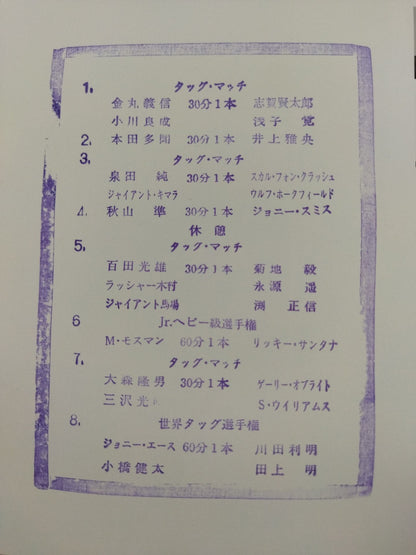 1. タッグ・マッチ
金丸義信 30分1本 志賀賢太郎
小川良成 浅子 覚
2. 本田多聞 30分1本 井上雅央
3. タッグ・マッチ
泉田 純 30分1本 スカル・フォン・クラッシュ
ジャイアント・キマラ ウルフ・ホークフィールド
4. 秋山 準 30分1本 ジョニー・スミス
休憩
5. タッグ・マッチ
百田光雄 30分1本 菊地 毅
ラッシャー木村 永源 遥
ジャイアント馬場 渕 正信
6 Jr.ヘビー級選手権
M・モスマン 60分1本 リッキー・サンタナ
7. タッグ・マッチ
大森隆男 30分1本 ゲーリー・オブライト
三沢光 S・ウイリアムス
8. 世界タッグ選手権
ジョニー・エース 60分1本 川田利明
小橋健太 田上 明